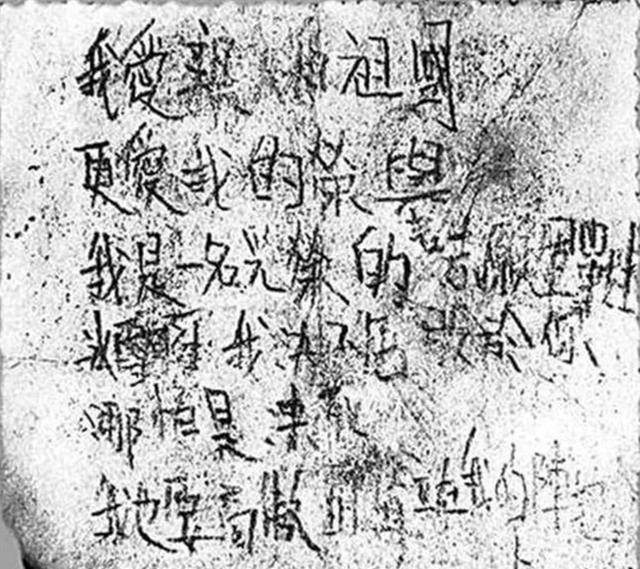 我愛親 祖國
更愛我的榮譽
我是一名光榮的志願軍戰士
冰雪啊 我決不屈服於你
哪怕是凍死
我也要高傲 立在我的陣地上